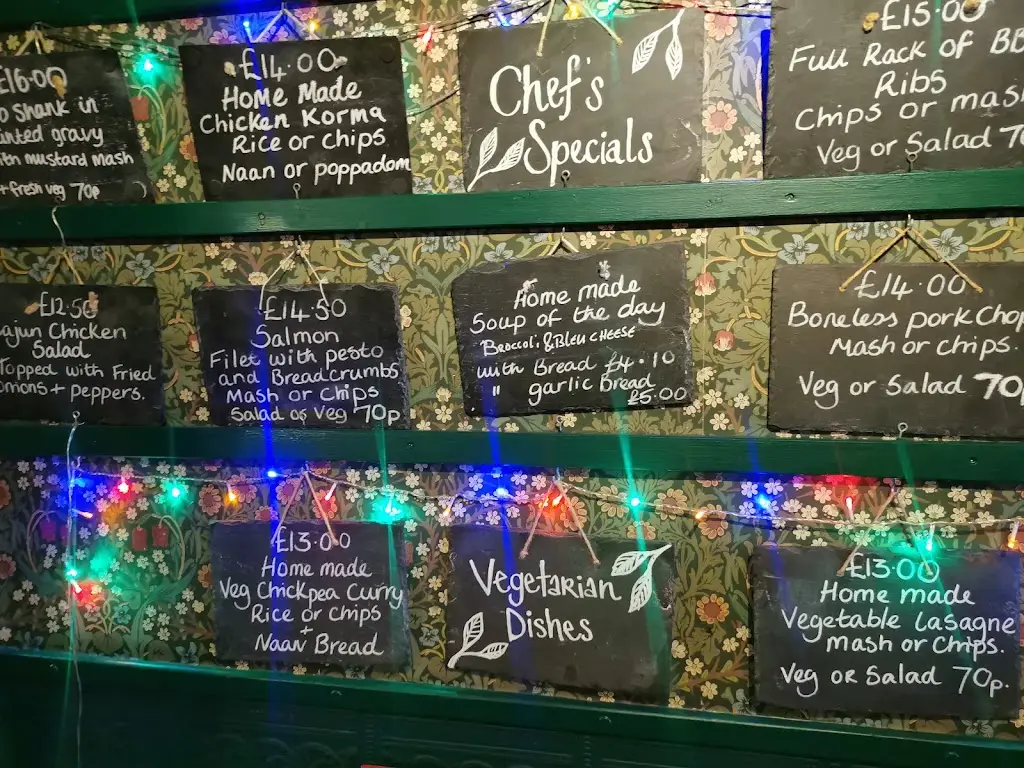 £16.00
Shank in
gravy
mustard mash
+ fresh veg 70p
£14.00
Home Made
Chicken Korma
Rice or chips
Naan or poppadom
Chef's
Specials
£15.00
Full Rack of BB
Ribs
Chips or mash
Veg or Salad 70
£12.50
ajun Chicken
Salad
Topped with Fried
onions + peppers.
£14.50
Salmon
Filet with pesto
and Breadcrumbs
Mash or Chips
Salad or Veg 70p
Home made
Soup of the day
Broccoli & Bleu CHEESE
with Bread £4.10
" garlic Bread
£5.00
£14.00
Boneless pork Chop
Mash or Chips.
Veg or Salad 70p
£13.00
Home made
Veg Chickpea Curry
Rice or chips
+
Naan Bread
Vegetarian
Dishes
£13.00
Home made
Vegetable Lasagne
Mash or Chips.
Veg or Salad 70p.